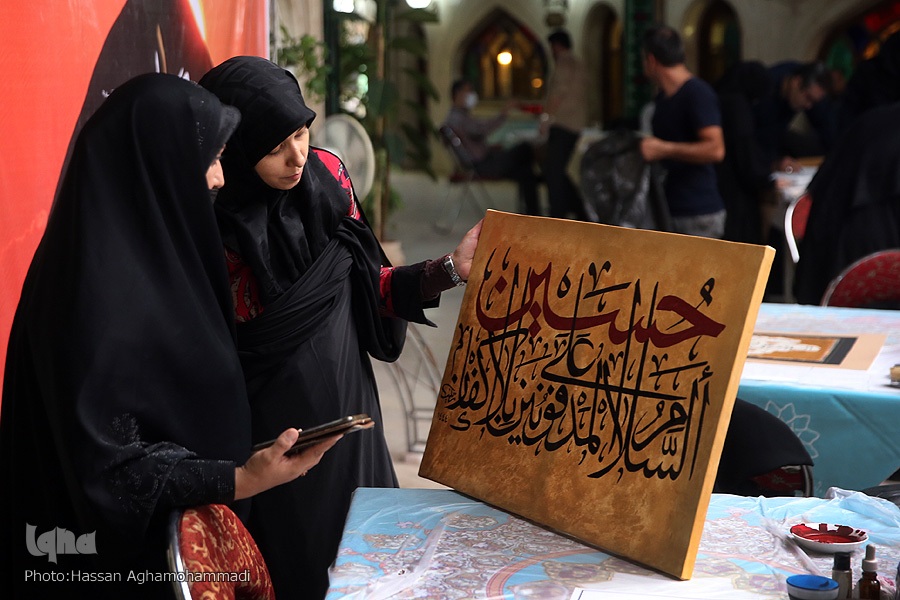 حسین
السلام علی المدفونین بلا اکفان
iqna
Photo:Hassan Aghamohammadi